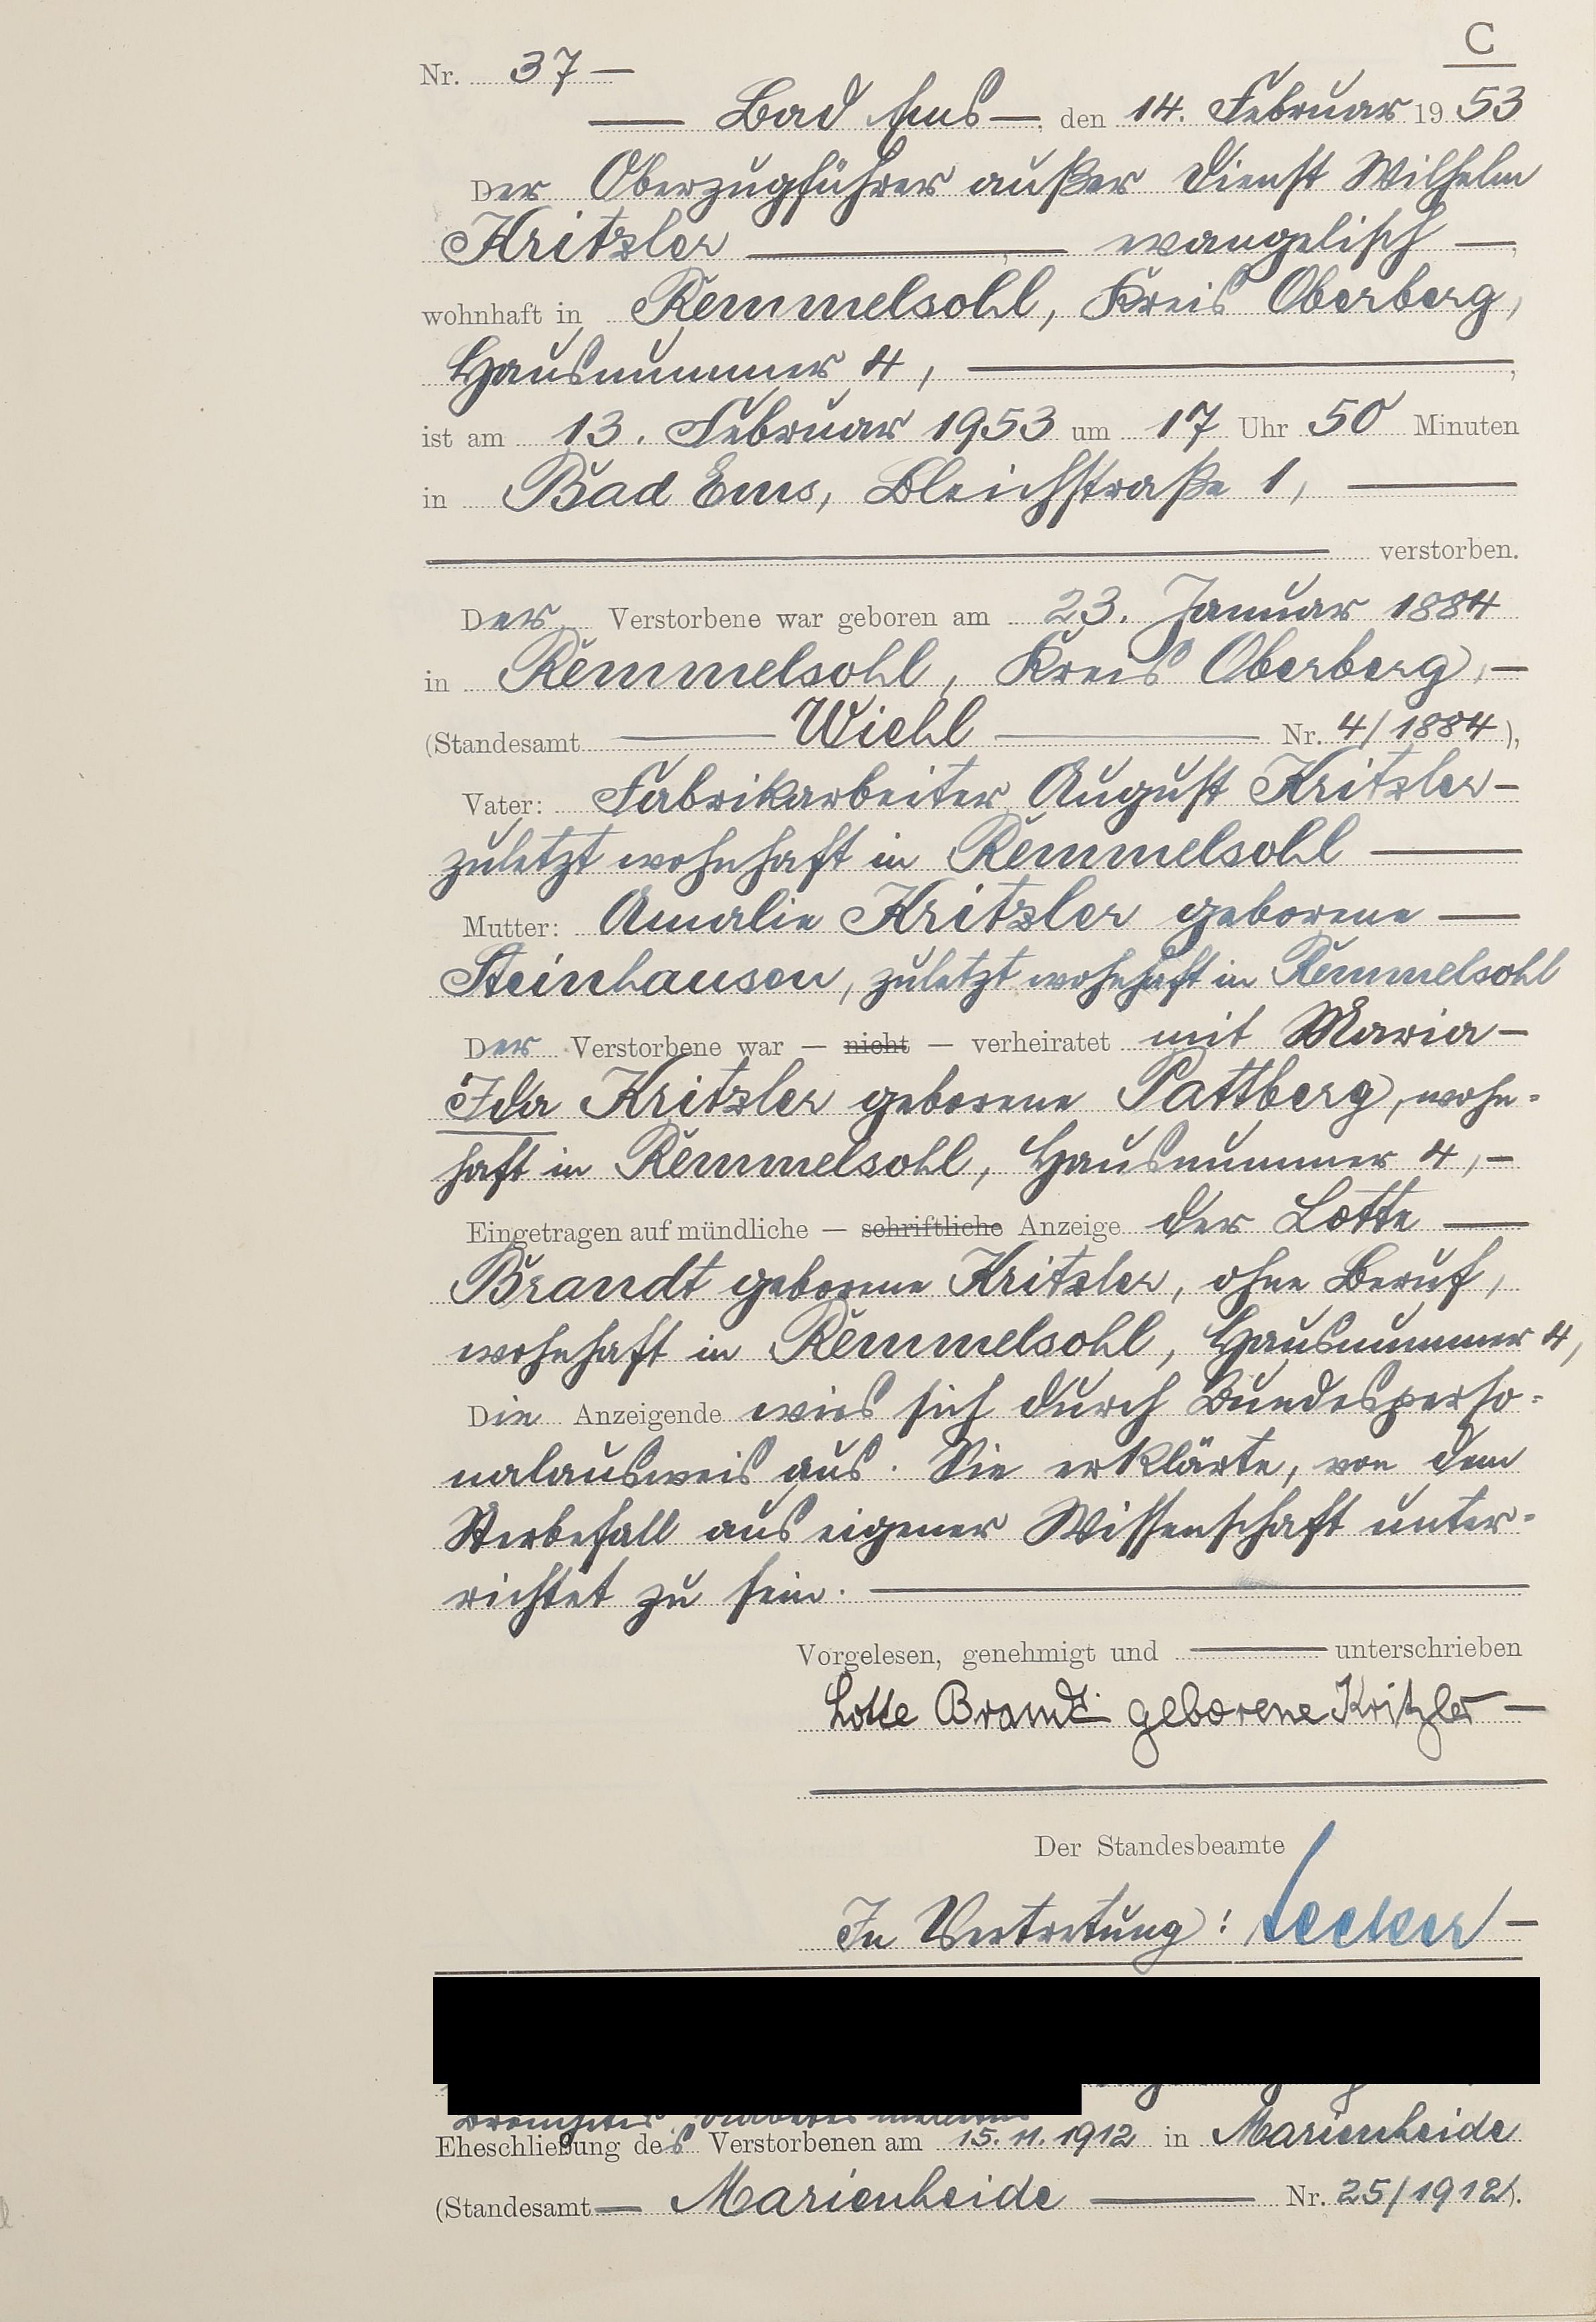 C
Nr. 37 —
— Bad Ems —, den 14. Februar 1953
Der Oberzugführer außer Dienst Wilhelm
Kritzler — , — evangelisch —,
wohnhaft in Remmelsohl, Kreis Oberberg,
Hausnummer 4, —,
ist am 13. Februar 1953 um 17 Uhr 50 Minuten
in Bad Ems, Bleichstraße 1, —
— verstorben.
Der Verstorbene war geboren am 23. Januar 1884
in Remmelsohl, Kreis Oberberg, —
(Standesamt — Wiehl — Nr. 4/1884),
Vater: Fabrikarbeiter August Kritzler —
zuletzt wohnhaft in Remmelsohl —
Mutter: Amalie Kritzler geborene —
Steinhausen, zuletzt wohnhaft in Remmelsohl
Der Verstorbene war — nicht — verheiratet mit Maria —
Ida Kritzler geborene Pattberg, wohn=
haft in Remmelsohl, Hausnummer 4, —
Eingetragen auf mündliche — schriftliche Anzeige der Lotte —
Brandt geborene Kritzler, ohne Beruf,
wohnhaft in Remmelsohl, Hausnummer 4,
Die Anzeigende wies sich durch Bundesperso=
nalausweis aus. Sie erklärte, von dem
Sterbefall aus eigener Wissenschaft unter=
richtet zu sein. —
Vorgelesen, genehmigt und — unterschrieben
Lotte Brandt geborene Kritzler —
Der Standesbeamte
In Vertretung: —
Eheschließung des Verstorbenen am 15.11.1912 in Marienheide
(Standesamt — Marienheide — Nr. 25/1912).